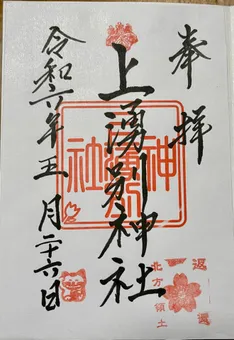 奉拝
上湧別神社
令和六年五月二十六日
北方領土
返還